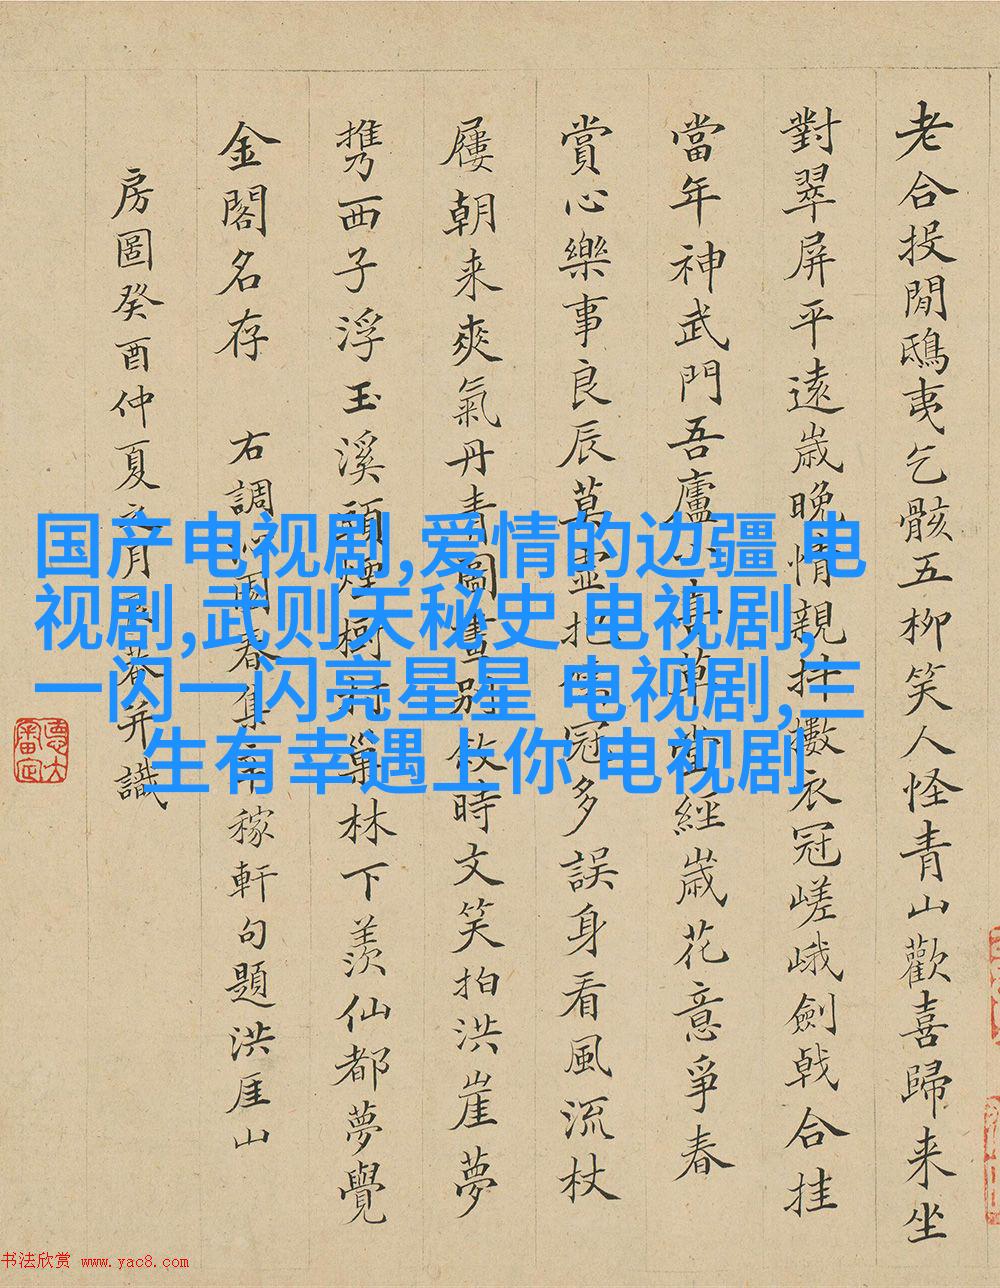 老合投閒鴟夷乞骸五柳笑人怪青山歡喜歸来坐
對翠屏平遠歲晚情親抖擻衣冠嵯峨劍戟合挂
當年神武門吾廬草堂經歲花意爭春
賞心樂事良辰莫虛把儒冠多誤身看風流杖
屨朝来爽氣丹青圖畫別時文笑拍洪崖夢
携西子浮玉溪頭煙樹村巢林下羨仙都夢覺
金閣名存 右調沁園春集辛稼軒句題洪厓山
房圖癸酉仲夏之月菴并識
国产电视剧,爱情的边疆 电
视剧,武则天秘史 电视剧,
一闪一闪亮星星 电视剧,三
生有幸遇上你 电视剧
书法欣赏 www.yac8.com